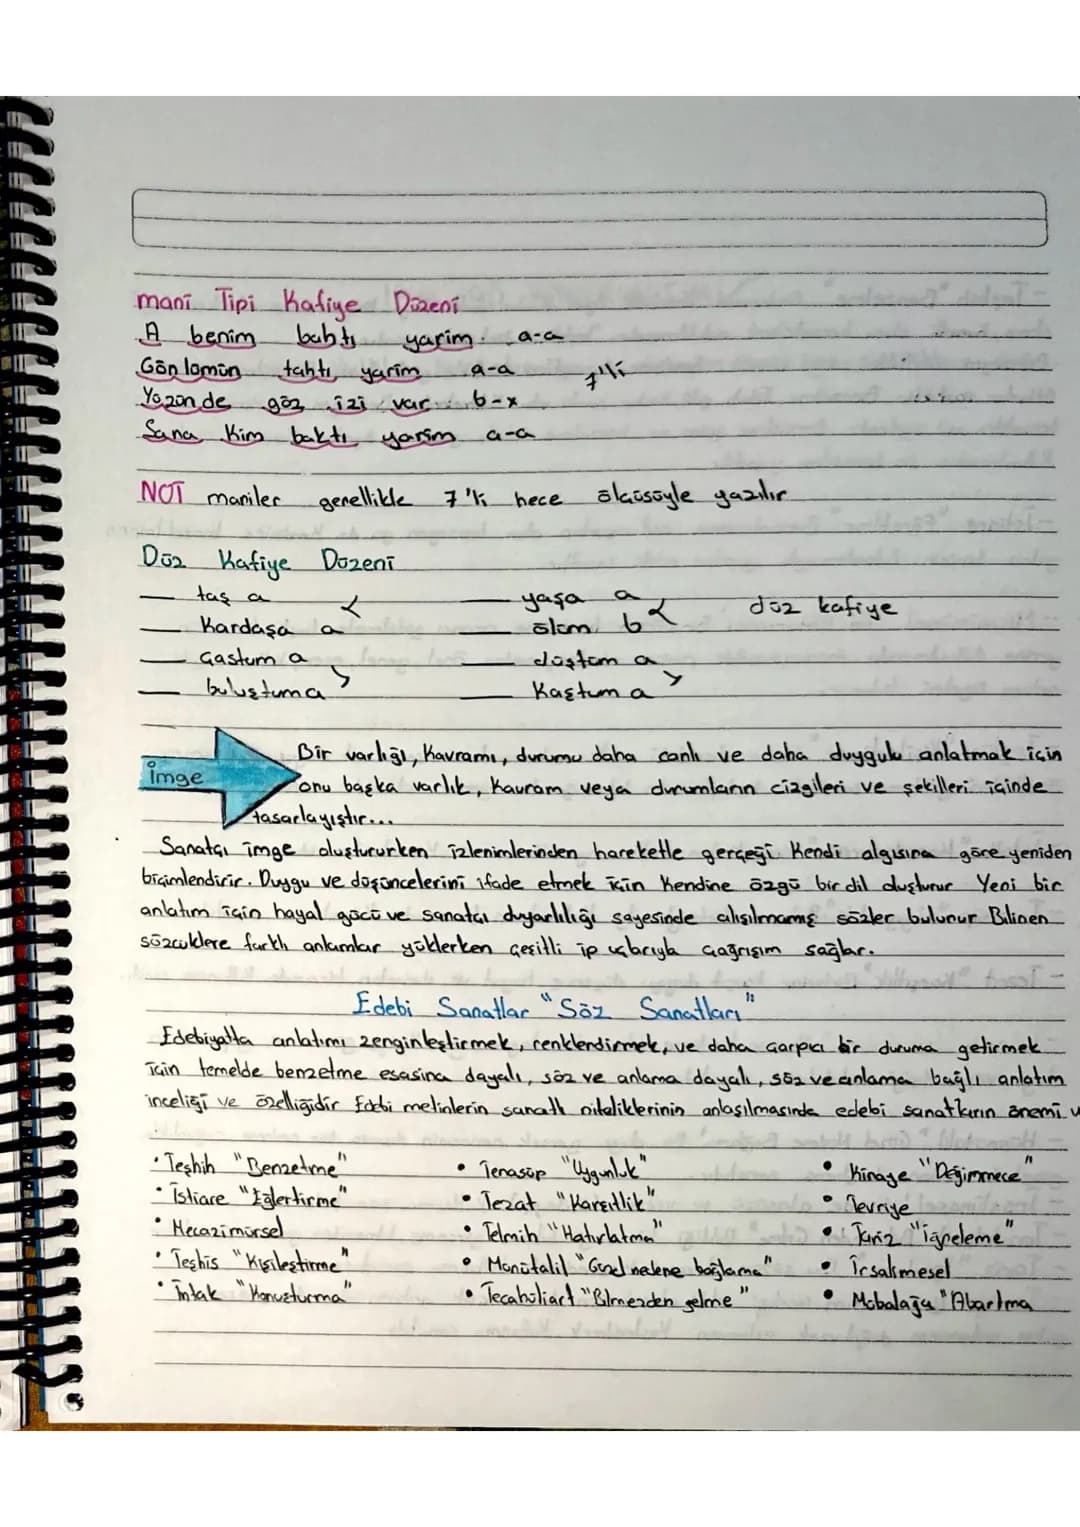 manî Tipi Kafiye Düzeni
A benim bahtı yarim. a-a
Gönlümün tahtı yarim a-a
7'li
Yüzünde göz izi var b-x
Sana Kim baktı yarim a-a
NOT maniler genellikle 7'li hece ölçüsüyle yazılır
Düz Kafiye Düzeni
taş a
yaşa a
düz kafiye
Kardaşa a
ölüm b
Çastum a
düştüm a
buluştum a
Kaştum a
imge
Bir varlığı, Kavramı, durumu daha canlı ve daha duygulu anlatmak için
onu başka varlık, Kavram veya durumların çizgileri ve şekilleri içinde
tasarlayıştır...
Sanatçı imge oluştururken izlenimlerinden hareketle gerçeği Kendi algısına göre yeniden
biçimlendirir. Duygu ve düşüncelerini ifade etmek için Kendine özgü bir dil oluşturur Yeni bir
anlatım için hayal gücü ve sanatçı duyarlılığı sayesinde alışılmamış sözler bulunur Bilinen
sözcüklere farklı anlamlar yüklerken çeşitli ip uçlarıyla çağrışım sağlar.
Edebi Sanatlar "Söz Sanatları"
Edebiyatta anlatımı zenginleştirmek, renklendirmek, ve daha çarpıcı bir duruma getirmek
için temelde benzetme esasına dayalı, söz ve anlama dayalı, söz ve anlama bağlı anlatım
inceliği ve özelliğidir Edebi metinlerin sanatlı niteliklerinin anlaşılmasında edebi sanatların önemi
• Teşhih "Benzetme"
• Tenasüp "Uygunluk"
• Kinaye "Değinmece"
• İstiare "Eğlertirme"
• Tezat "Karşıtlık"
• Tevriye
• Mecazimürsel
• Telmih "Hatırlatma"
• Tariz "iğneleme"
• Teşhis "Kişileştirme"
• Hünütalil "Güzel nedene bağlama"
• İrsalimesel
• İntak "Konuşturma"
• Tecahüliarf "Bilmezden gelme"
• Mübalağa "Abartma